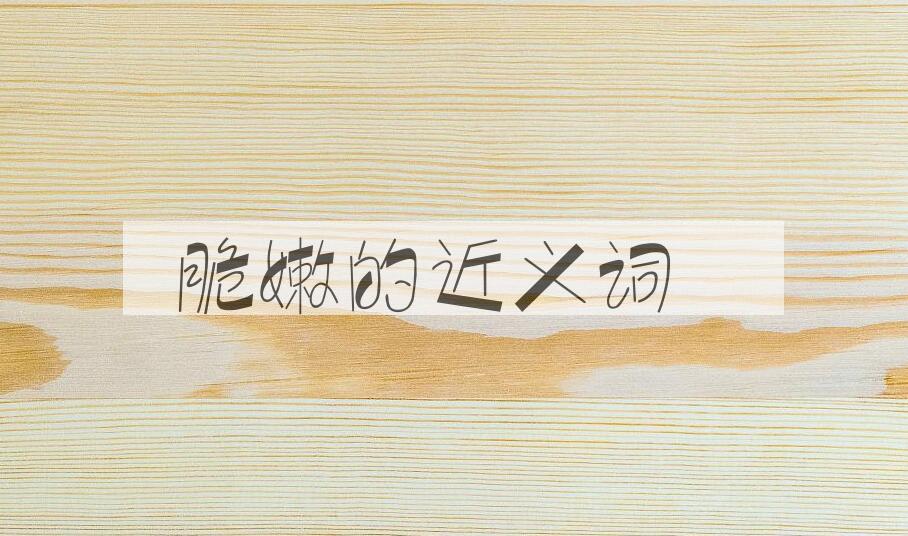 脆嫩的近义词